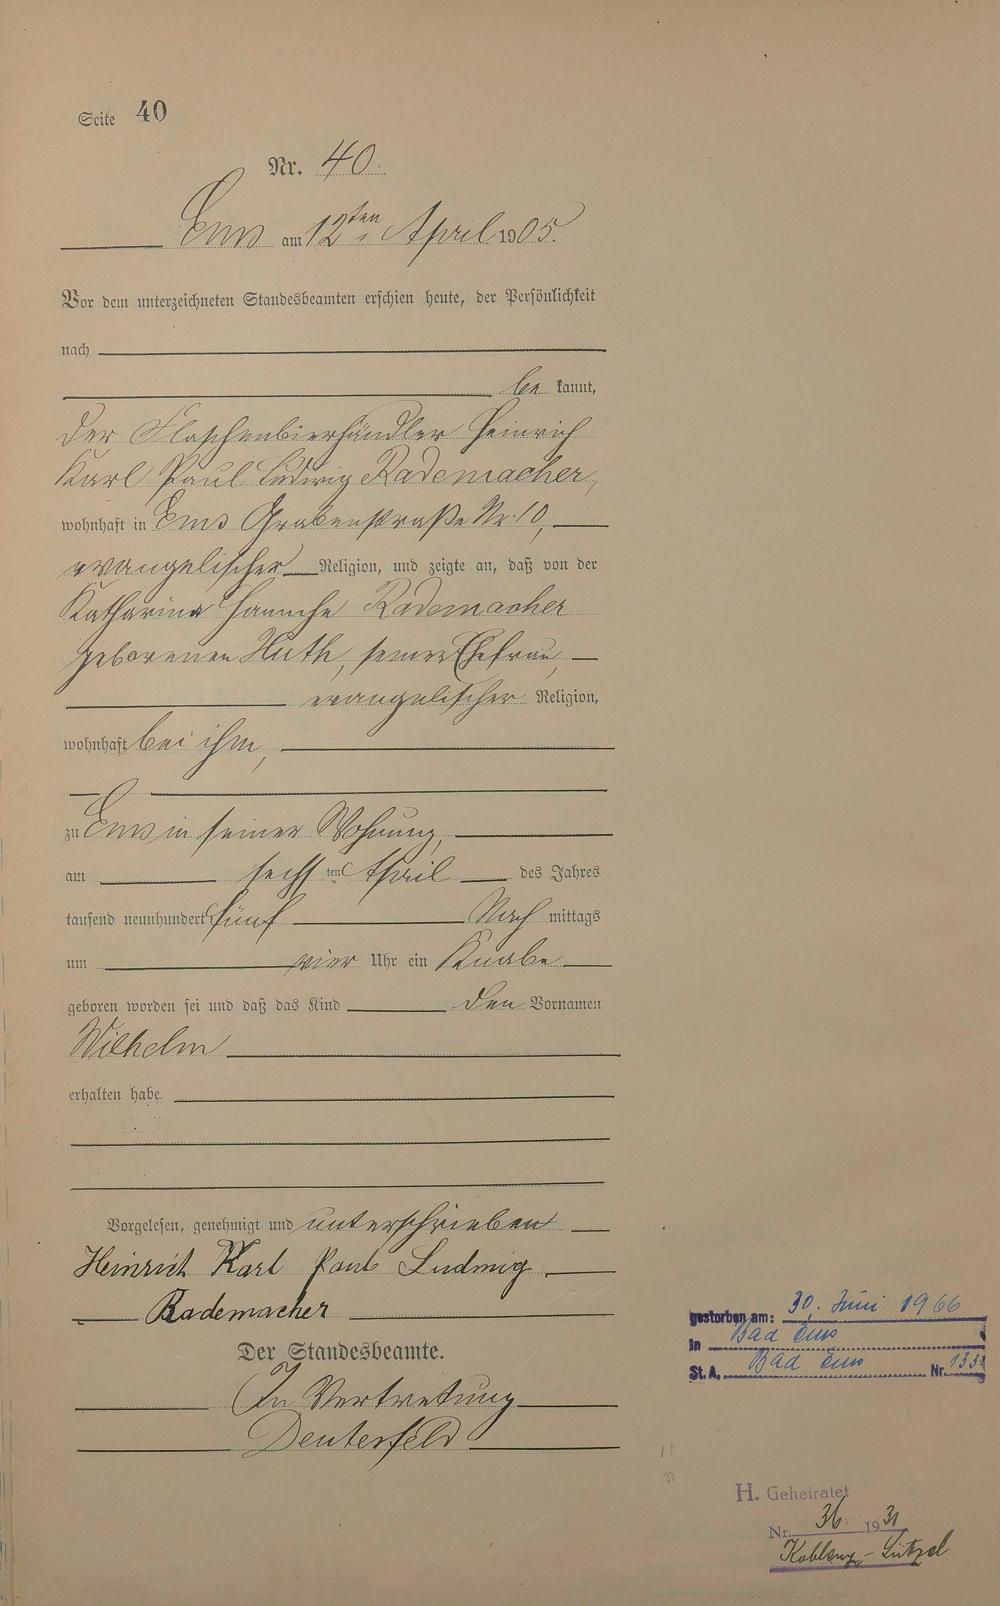 Seite 40
Nr. 40.
Ems am 12ten April 1905.
Vor dem unterzeichneten Standesbeamten erschien heute, der Persönlichkeit
nach
be kannt,
der Flaschenbierhändler Heinrich
Karl Paul Ludwig Rademacher,
wohnhaft in Ems Grabenstraße Nr. 10,
evangelischer Religion, und zeigte an, daß von der
Katharina Rademacher
geborenen Huth, seiner Ehefrau,
evangelischer Religion,
wohnhaft bei ihm,
zu Ems in seiner Wohnung,
am sechsten April des Jahres
tausend neunhundert fünf Nach mittags
um vier Uhr ein Knabe
geboren worden sei und daß das Kind den Vornamen
Wilhelm
erhalten habe.
Vorgelesen, genehmigt und unterschrieben
Heinrich Karl Paul Ludwig
Rademacher
Der Standesbeamte.
In Vertretung
Deuterfeld
gestorben am: 30. Juni 1966
in Bad Ems
St.A. Bad Ems Nr.
H. Geheiratet
Nr. 36 1931
Koblenz-Lützel